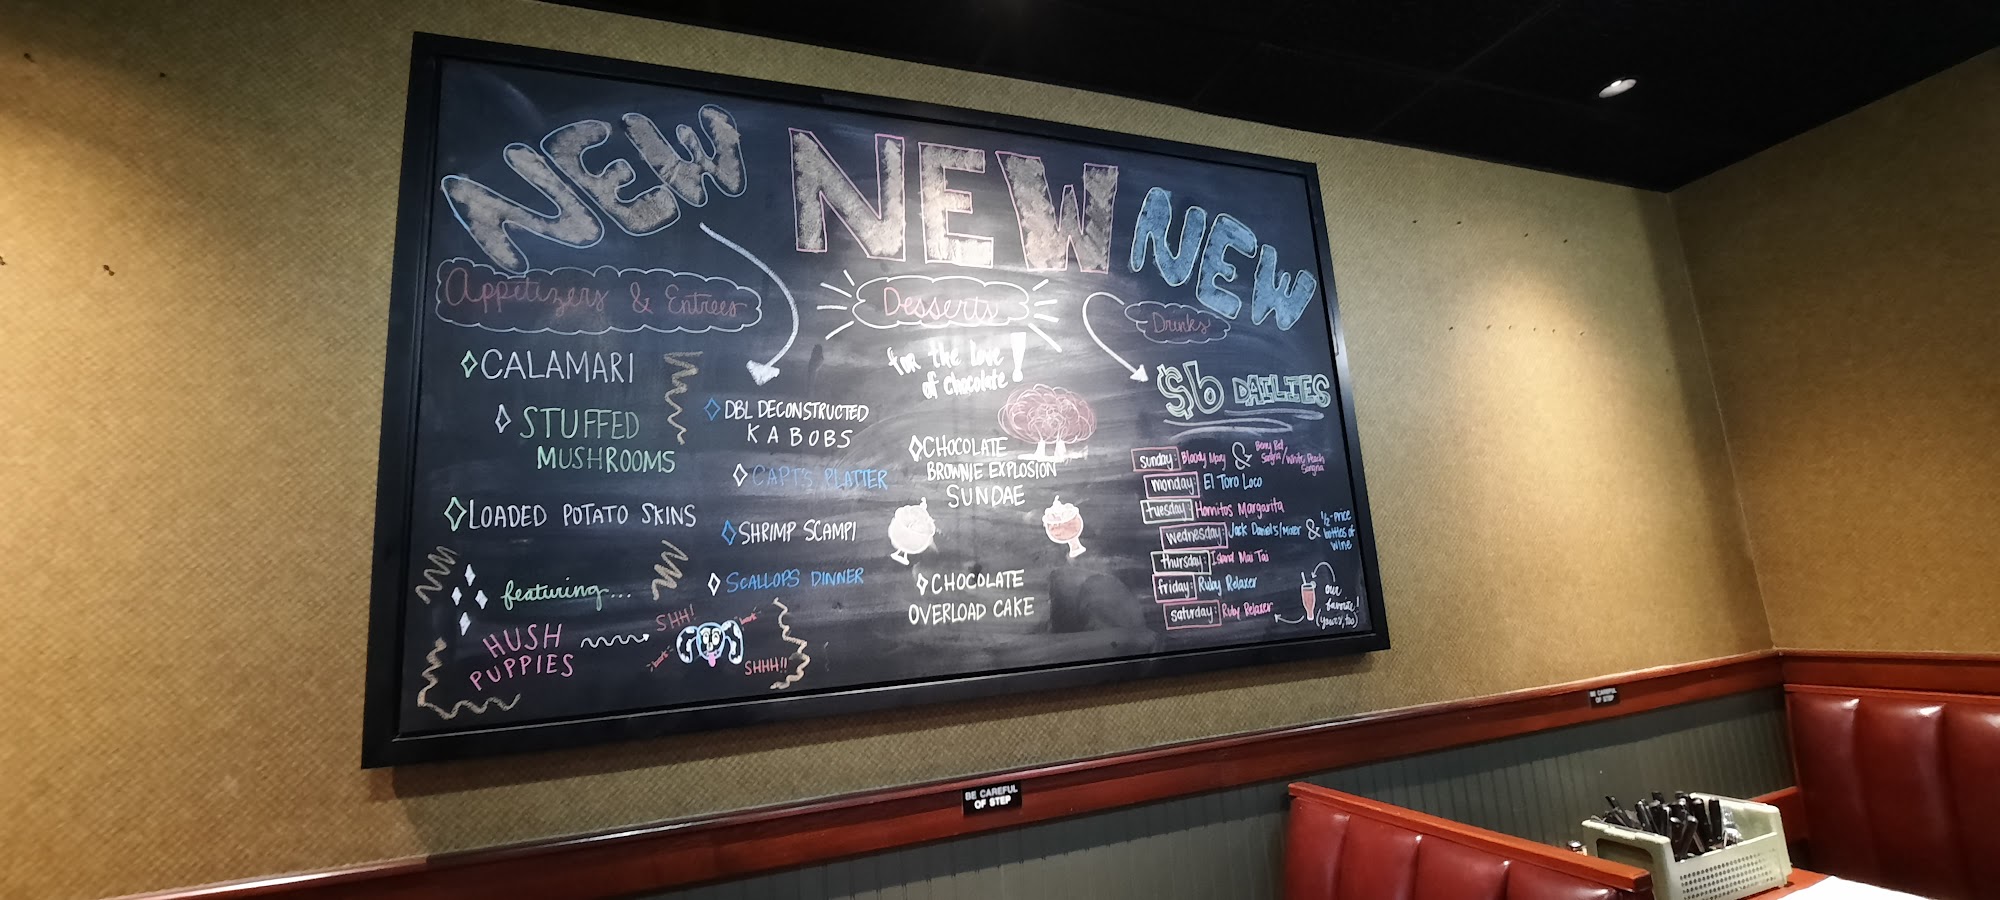 NEW
Appetizers & Entrees
CALAMARI
STUFFED
MUSHROOMS
LOADED POTATO SKINS
featuring...
HUSH
PUPPIES
SHH!
bark
bark
SHHH!!
DBL DECONSTRUCTED
KABOBS
CAPT'S PLATTER
SHRIMP SCAMPI
SCALLOPS DINNER
NEW
Desserts
for the love
of chocolate!
CHOCOLATE
BROWNIE EXPLOSION
SUNDAE
CHOCOLATE
OVERLOAD CAKE
NEW
Drinks
$6 DAILIES
sunday: Bloody Mary & Berry Red
Sangria/White Peach
Sangria
monday: El Toro Loco
tuesday: Hornitos Margarita
wednesday: Jack Daniel's/Mixer & 1/2-price
bottles of
wine
thursday: Island Mai Tai
friday: Ruby Relaxer
saturday: Ruby Relaxer
our
favorite!
(yours, too)
BE CAREFUL
OF STEP
BE CAREFUL
OF STEP